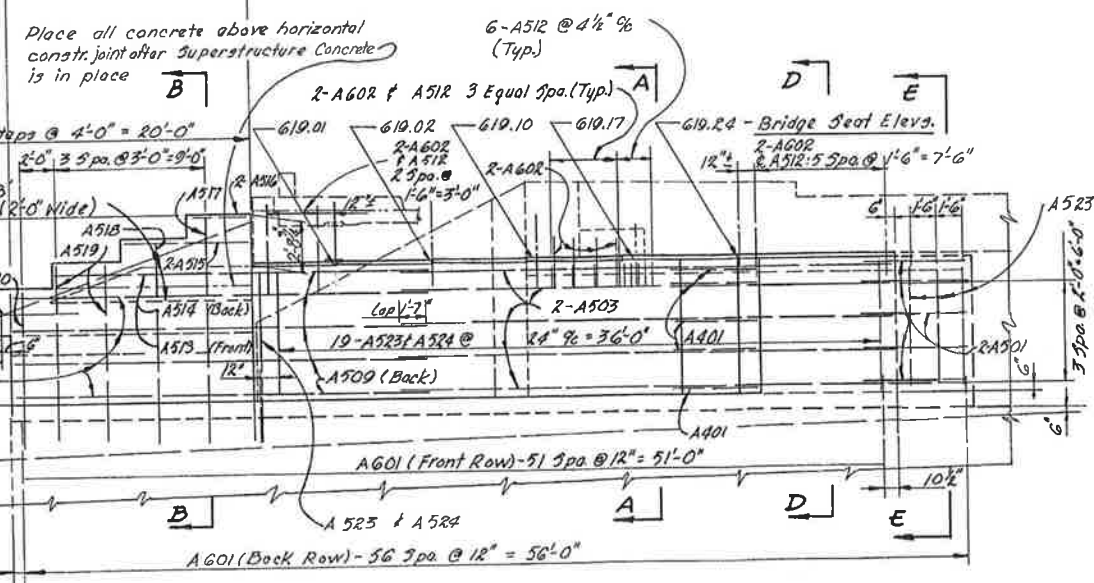 Place all concrete above horizontal
constr. joint after Superstructure Concrete
is in place
6-A512 @ 4½" %
(Typ.)
B
2-A602 & A512 3 Equal Spa. (Typ.)
A
D
E
@ 4'-0" = 20'-0"
619.01
619.02
619.10
619.17
619.24 - Bridge Seat Elevs.
2'-0"
3 Spa. @ 3'-0" = 9'-0"
2-A602
& A512
2 Spa. @
1'-6" = 3'-0"
2-A602
12"±
2-A602
& A512: 5 Spa. @ 1'-6" = 7'-6"
A517
2-A516
12"±
(2'-0" Wide)
6"
1'-6"
1'-6"
A523
A518
A519
2-A515
A514 (Back)
A513 (Front)
Lap 1'-7"
2-A503
19-A523 & A524 @
24" % = 36'-0"
A401
2-A501
3 Spa @ 2'-0" = 6'-0"
12"
A509 (Back)
6"
6"
A401
A601 (Front Row) - 51 Spa @ 12" = 51'-0"
10½"
B
A
D
E
A523 & A524
A601 (Back Row) - 56 Spa. @ 12" = 56'-0"